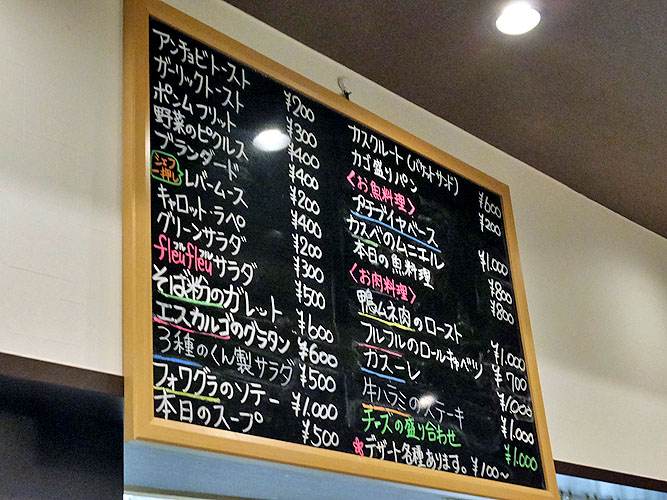 アンチョビトースト ¥200
ガーリックトースト ¥300
ポンムフリット ¥400
野菜のピクルス ¥400
ブランダード ¥200
シェフ一押し レバームース ¥400
キャロットラペ ¥200
グリーンサラダ ¥300
フル フル
fleufleuサラダ ¥500
そば粉のガレット ¥600
エスカルゴのグラタン ¥600
3種のくん製サラダ ¥500
フォワグラのソテー ¥1.000
本日のスープ ¥500
カスクルート(バケットサンド) ¥600
カゴ盛りパン ¥200
<お魚料理>
プチブイヤベース ¥1.000
カスベのムニエル ¥800
本日の魚料理 ¥800
<お肉料理>
鴨ムネ肉のロースト ¥1.000
フルフルのロールキャベツ ¥700
カスーレ ¥1000
牛ハラミのステーキ ¥1.000
チーズの盛り合わせ ¥1.000
デザート各種あります。 ¥100~